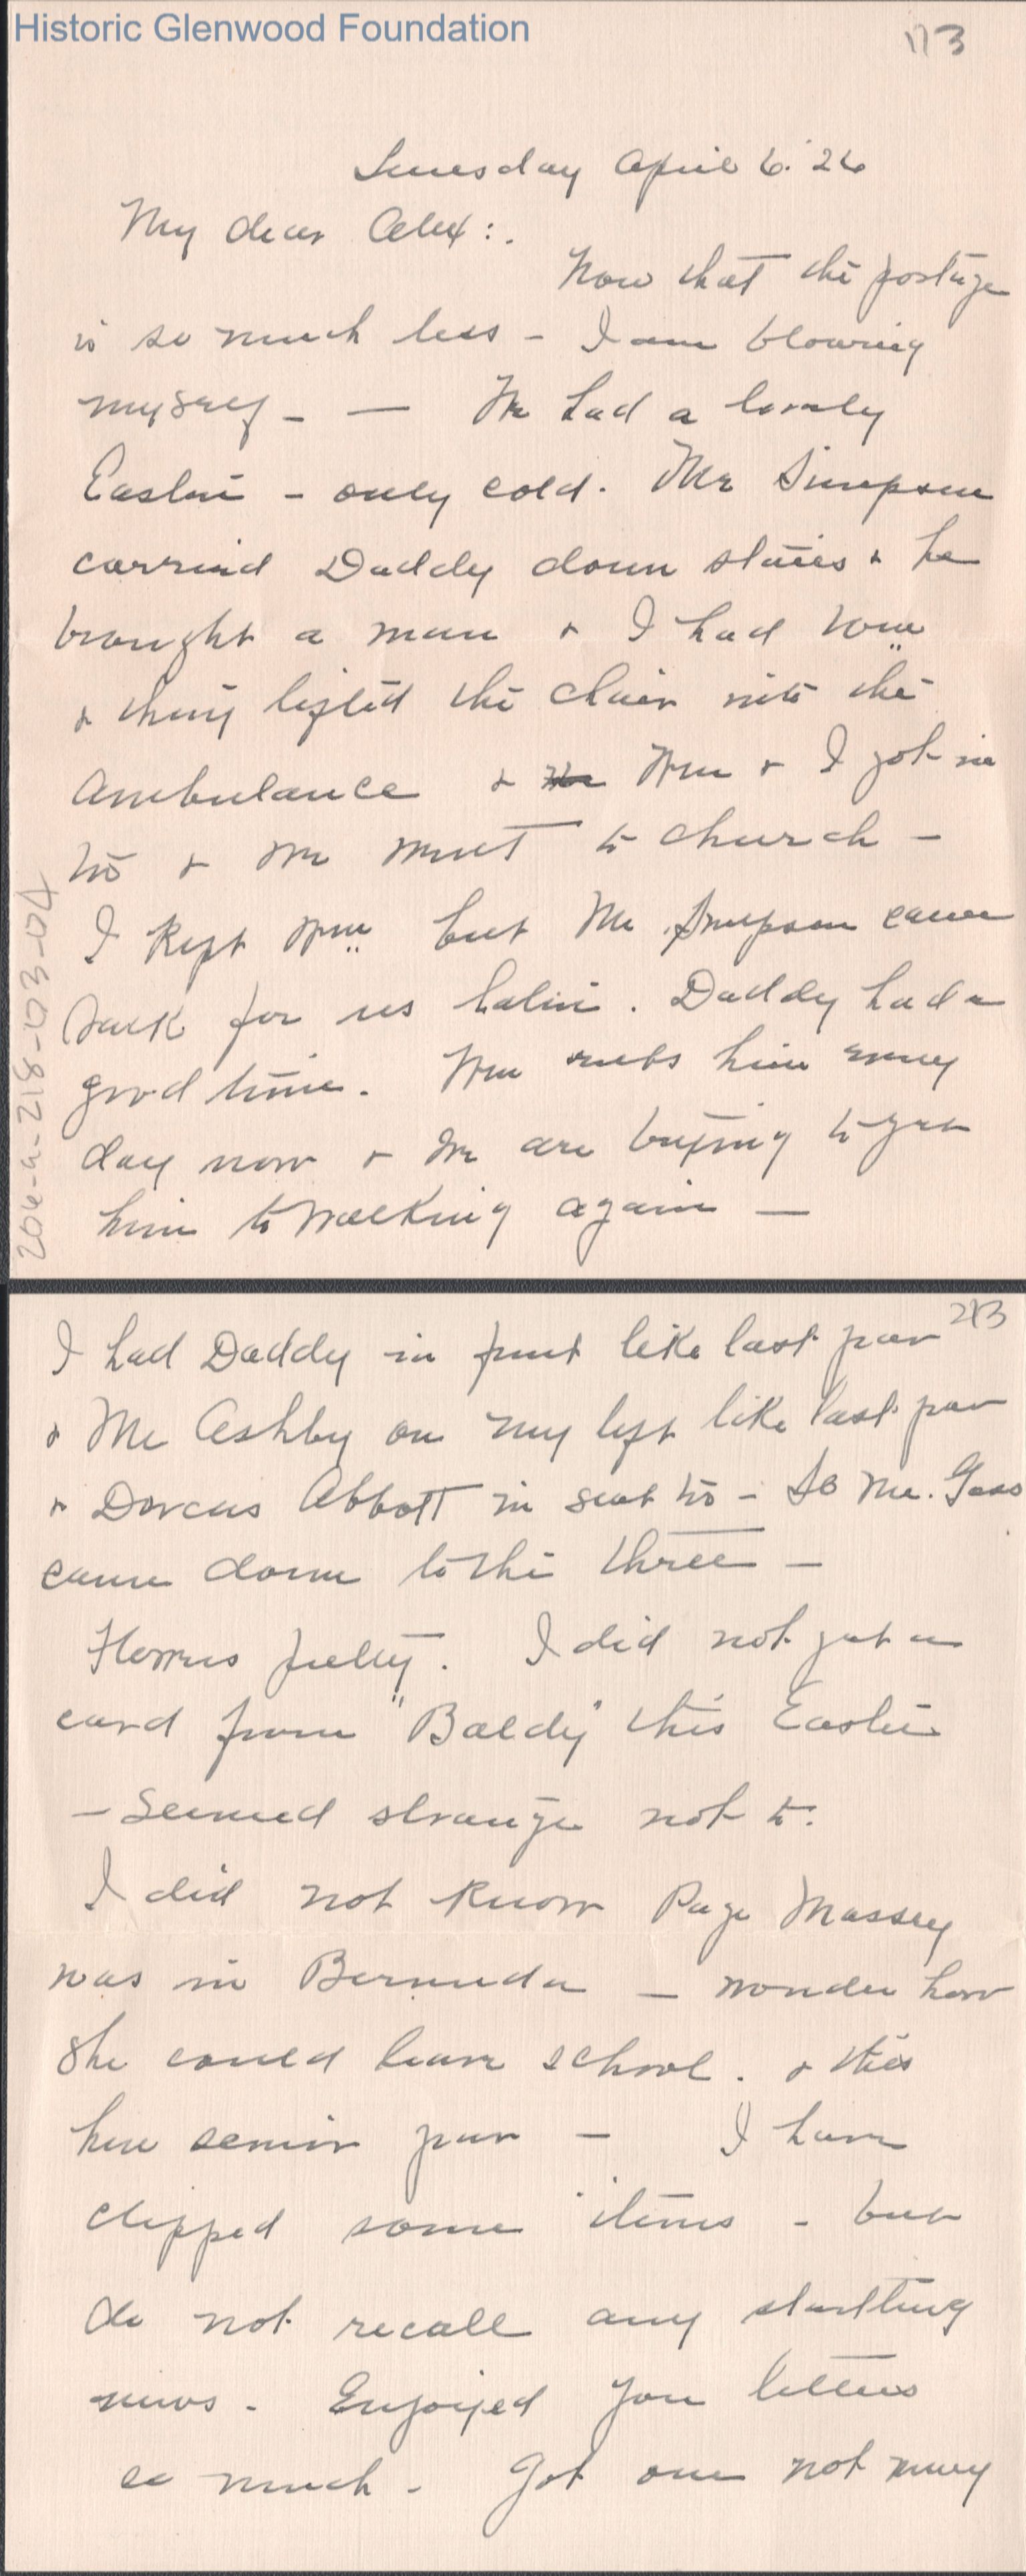 Historic Glenwood Foundation
1/3
Tuesday April 6. '26
My dear Alex:.
Now that the postage
is so much less - I am blowing
myself - — We had a lovely
Easter - only cold. Mr Simpson
carried Daddy down stairs & he
brought a man & I had Wm
& they lifted the chair into the
Ambulance & Wm & I got in
to & we went to church —
I kept Wm but Mr. Simpson came
back for us later. Daddy had a
good time. Wm rubs him every
day now & we are trying to get
him to walking again —
206-a-218-03-04
2/3
I had Daddy in front like last year
& Mr Ashby on my left like last year
& Dorcas Abbott in seat to - So Mr. Goss
came down to the three —
Flowers pretty. I did not get a
card from "Baldy" this Easter
— Seemed strange not to.
I did not know Page Massey
was in Bermuda — wonder how
she could leave school. & this
her senior year — I have
clipped some items - but
do not recall any startling
news - Enjoyed your letters
so much - Got one not many